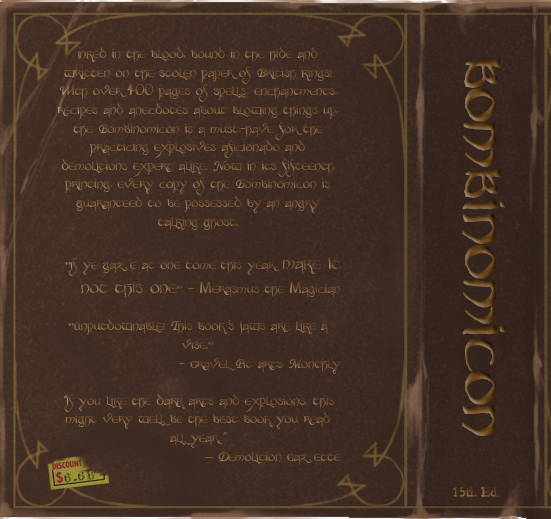 inked in the blood, bound in the hide and
written on the stolen paper of British Kings!
With over 400 pages of spells, enchantments,
recipes and anecdotes about blowing things up,
the Bombinomicon is a must-have for the
practicing explosives aficionado and
demolitions expert alike. Now in its fifteenth
printing, every copy of the Bombinomicon is
guaranteed to be possessed by an angry
talking ghost.
"If ye gaze at one tome this year, make it
not this one" - Merasmus the Magician
"Unputdownable! This book's jaws are like a
vise."
- Gravel Pit Arts Monthly
"If you like the dark arts and explosions, this
might very well be the best book you read
all year."
- Demolition Gazette
DISCOUNT
$6.66
BOMBINOMICON
15th Ed.